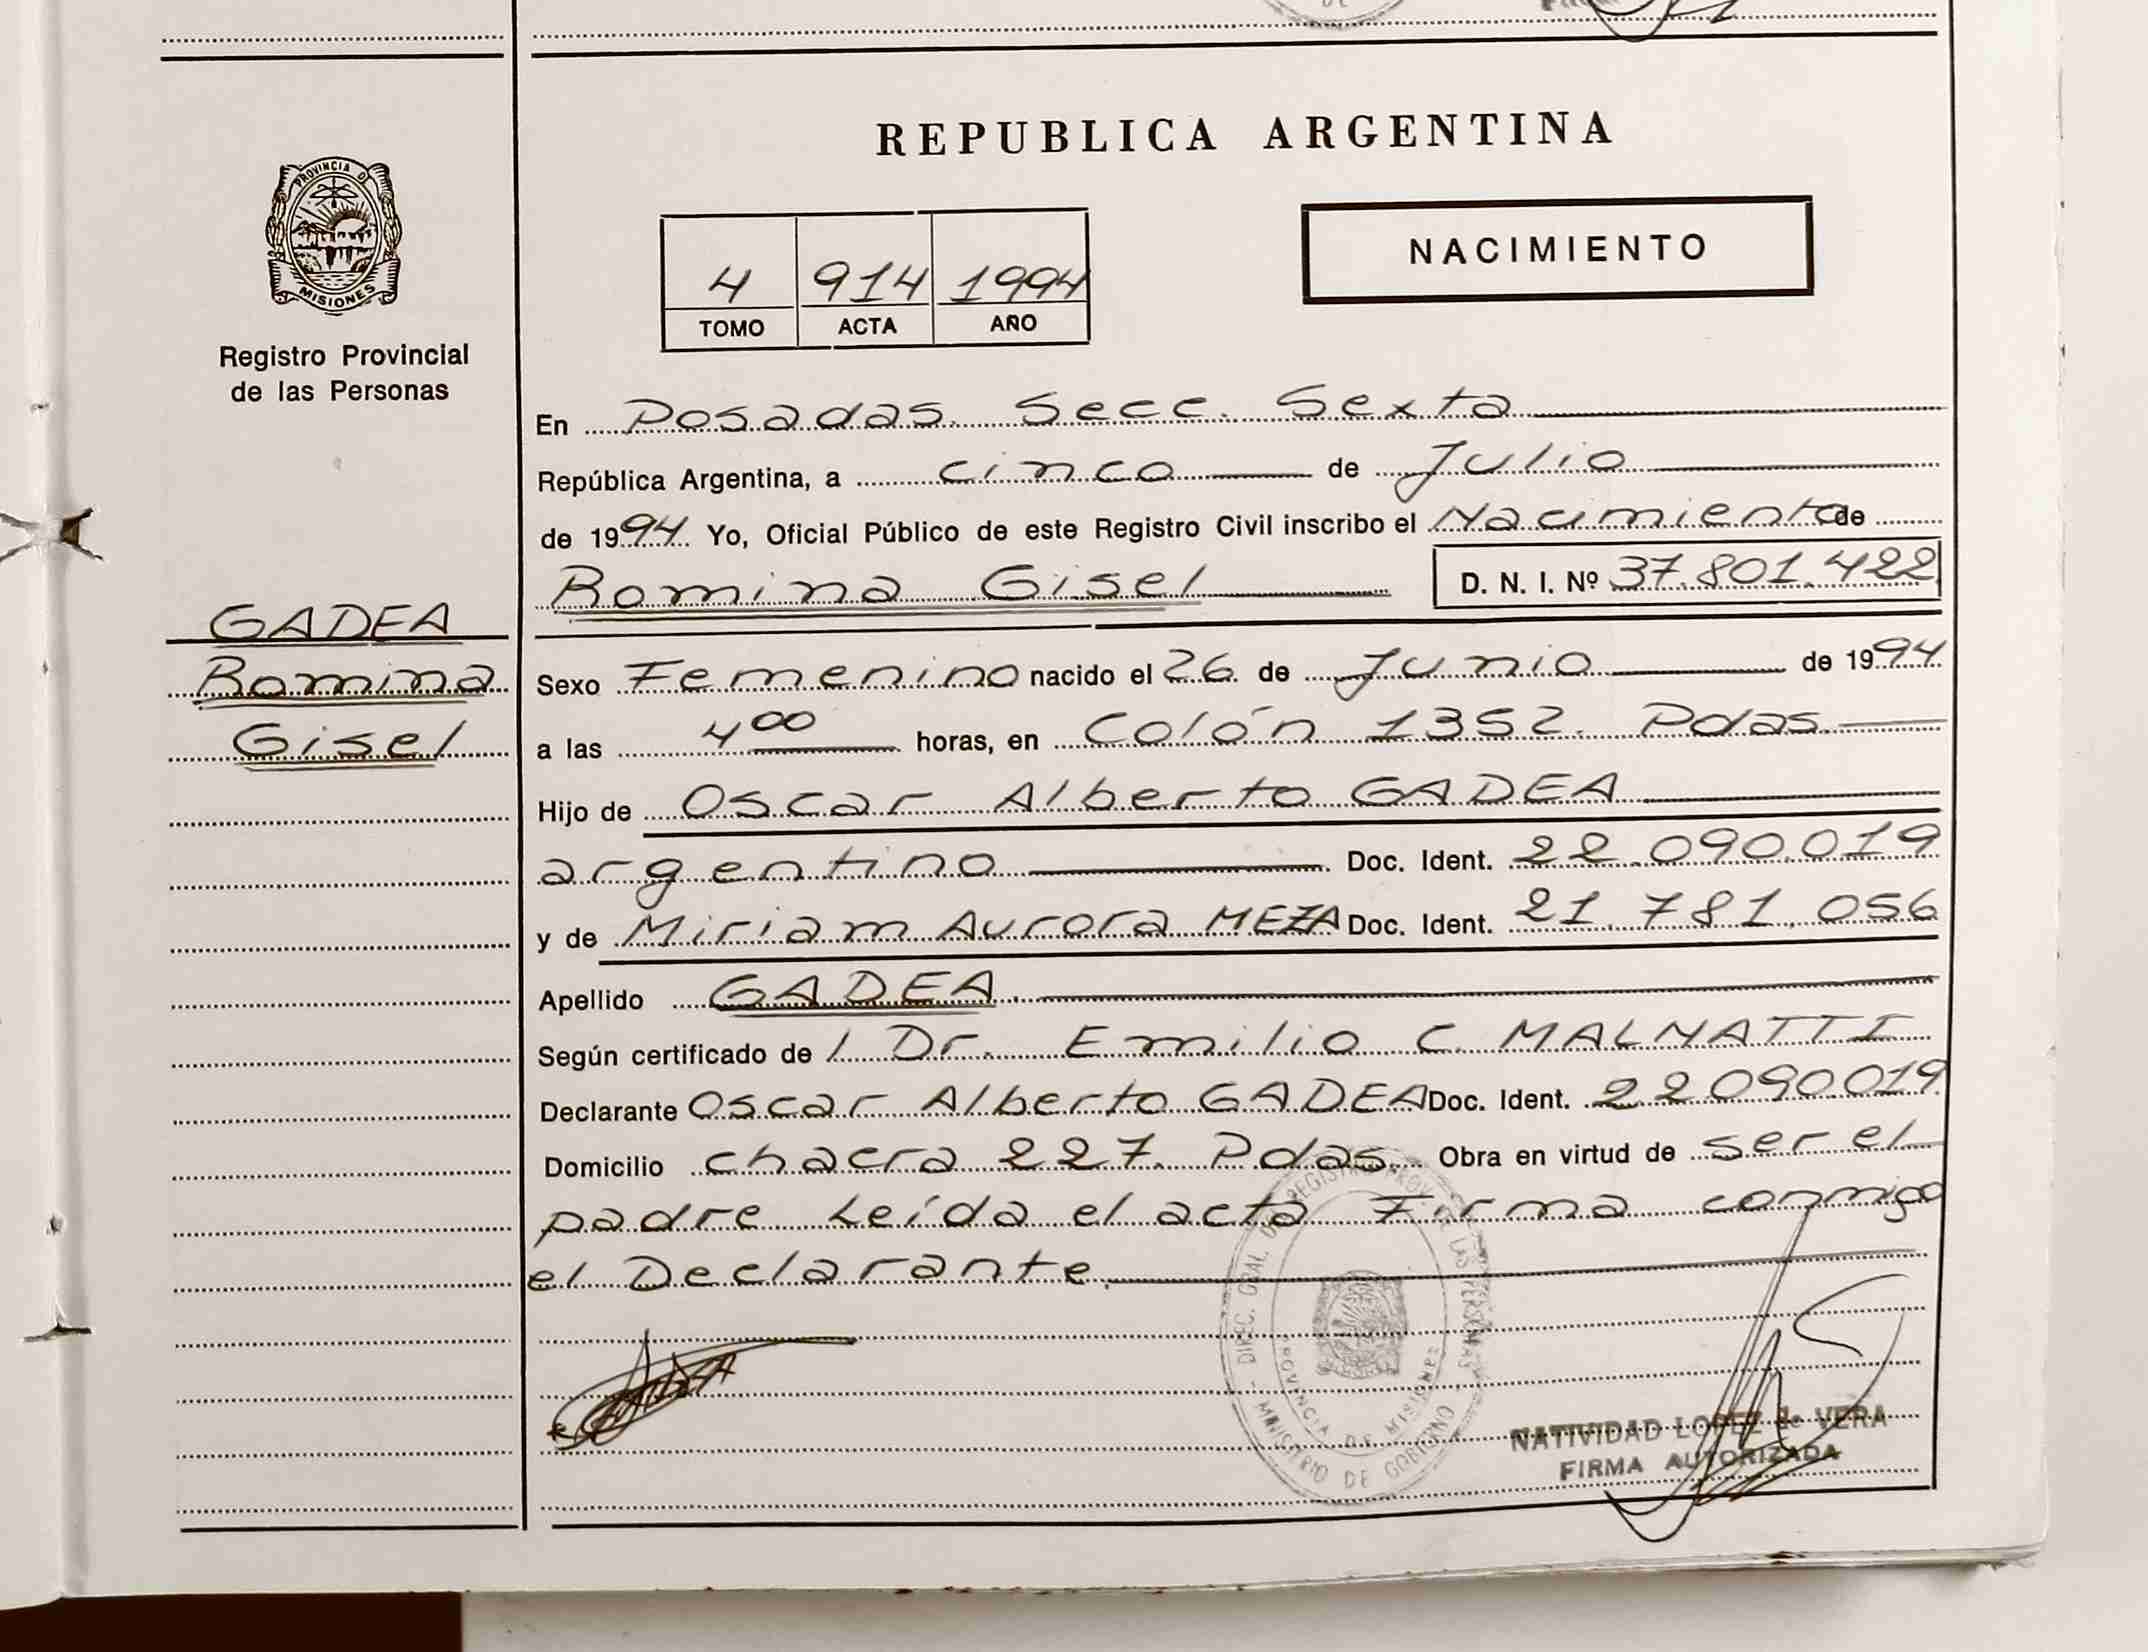 REPUBLICA ARGENTINA
PROVINCIA D
MISIONES
Registro Provincial
de las Personas
4 914 1994
TOMO ACTA AÑO
NACIMIENTO
En Posadas. Secc. Sexta
República Argentina, a cinco de Julio
de 1994 Yo, Oficial Público de este Registro Civil inscribo el Nacimiento de
Romina Gisel D. N. I. Nº 37.801.422
GADEA
Romina
Gisel
Sexo Femenino nacido el 26 de Junio de 1994
a las 4 00 horas, en Colón 1352. Pdas.
Hijo de Oscar Alberto GADEA
argentino Doc. Ident. 22.090.019
y de Miriam Aurora MEZA Doc. Ident. 21.781.056
Apellido GADEA.
Según certificado de / Dr. Emilio C. MALNATTI
Declarante Oscar Alberto GADEA Doc. Ident. 22090.019
Domicilio chacra 227. Pdas. Obra en virtud de ser el
padre Leída el acta Firma conmigo
el Declarante.
DIREC. GRAL. DEL REGISTRO PROV. DE LAS PERSONAS
PROVINCIA DE MISIONES
MINISTERIO DE GOBIERNO
NATIVIDAD LOPEZ de VERA
FIRMA AUTORIZADA